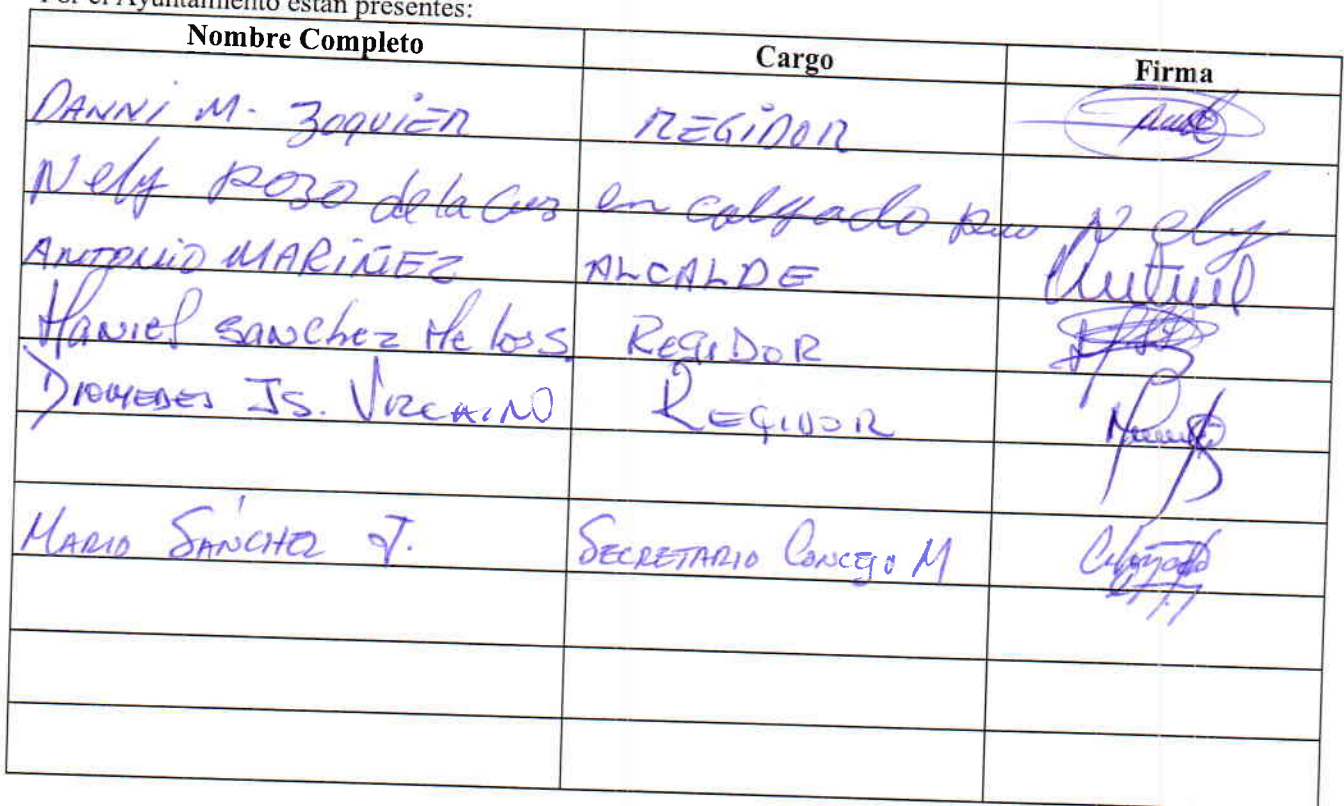 Por el Ayuntamiento están presentes:
Nombre Completo Cargo Firma
DANNI M. ZOQUIER REGIDOR
Nely pozo de la Cruz en calgado Nely
ANTONIO MARIÑEZ ALCALDE
Haniel Sanchez De los S. REGIDOR
DIOMEDES JS. VIZCAINO REGIDOR
MARIO SÁNCHEZ J. SECRETARIO CONCEJO M